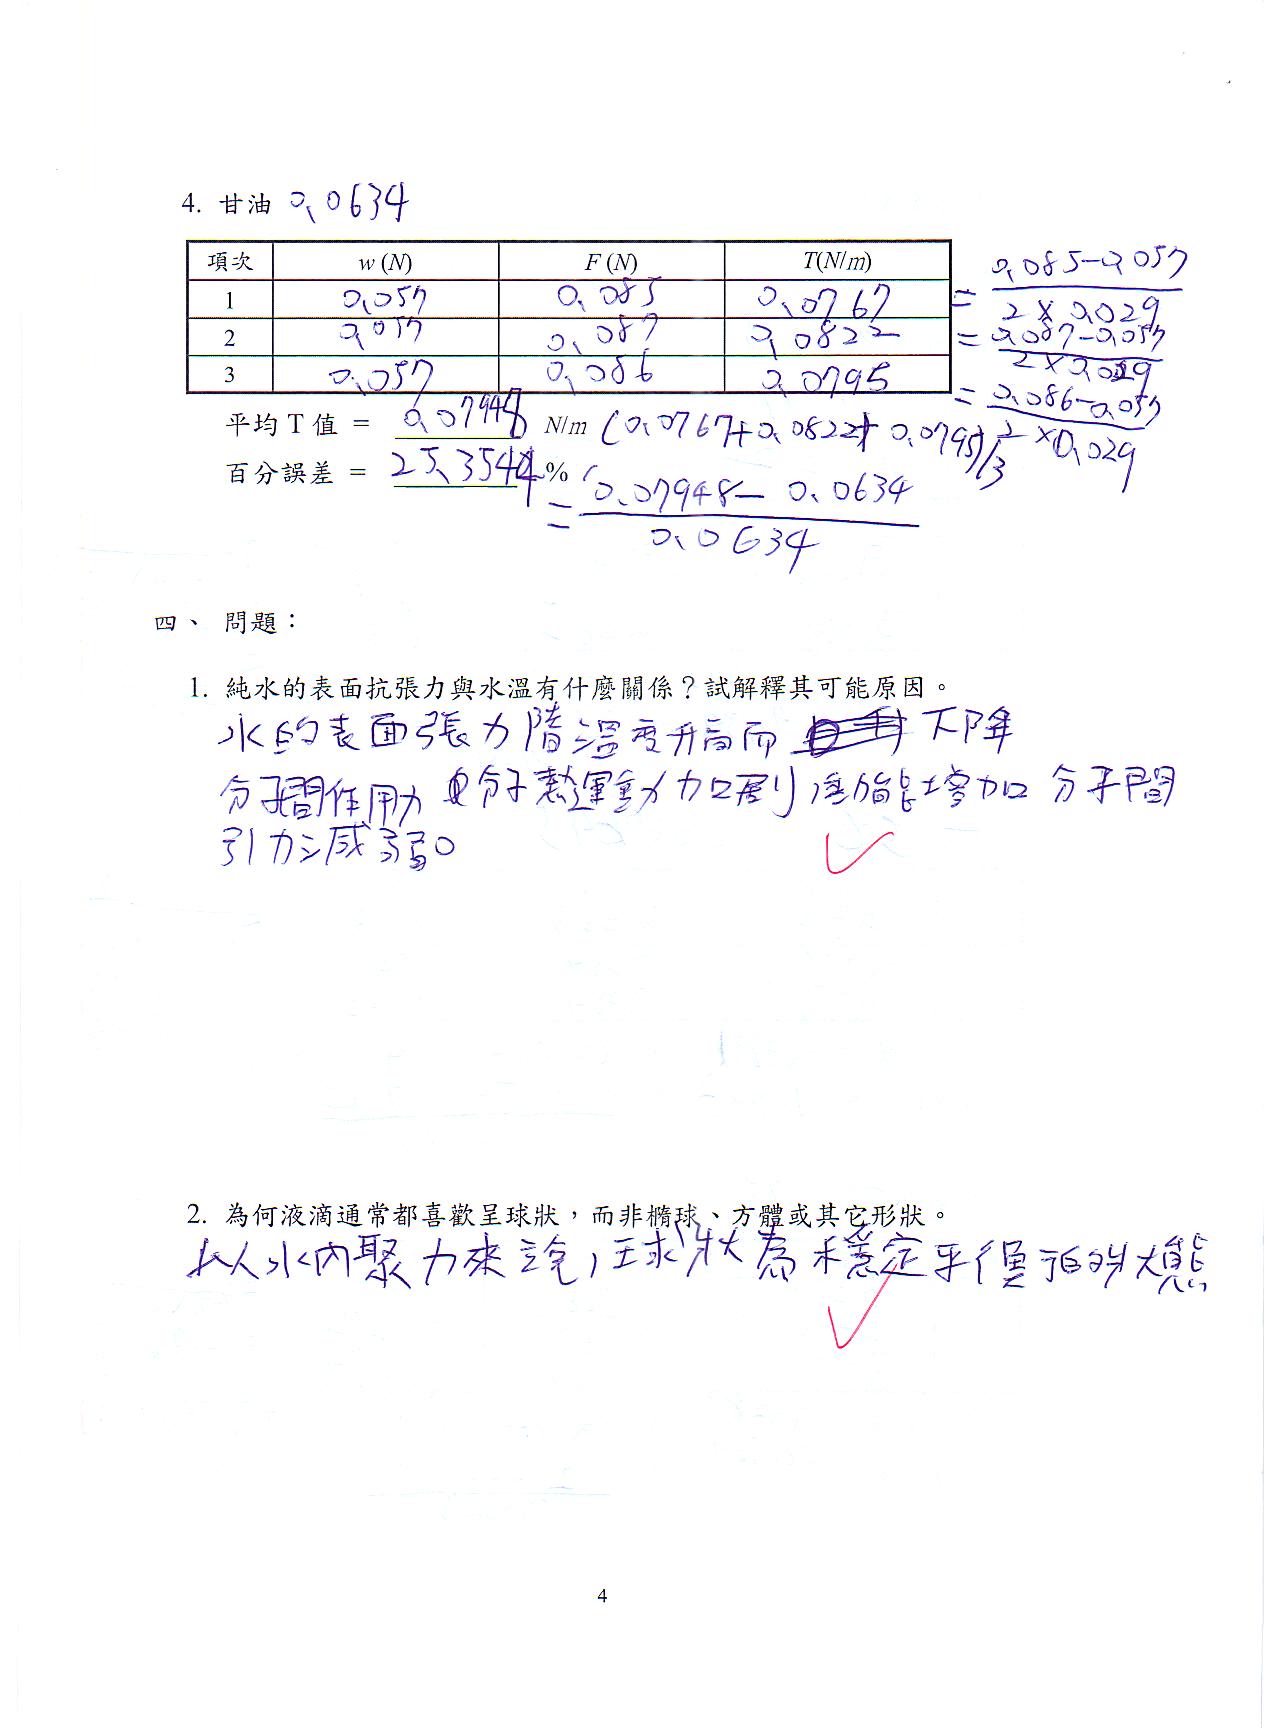 4. 甘油 0.0634
項次 w (N) F (N) T(N/m)
1 0.057 0.085 0.0767 = 0.085-0.057 / 2×0.029
2 0.057 0.087 0.0822 = 0.087-0.057 / 2×0.029
3 0.057 0.086 0.0795 = 0.086-0.057 / 2×0.029
平均T值 = 0.07948 N/m (0.0767+0.0822+0.0795)/3
百分誤差 = 25.3544 % = 0.07948-0.0634 / 0.0634
四、 問題：
1. 純水的表面抗張力與水溫有什麼關係？試解釋其可能原因。
水的表面張力階溫度升高而 下降
分子間作用力 分子熱運動加劇 動能增加 分子間
引力減弱。
2. 為何液滴通常都喜歡呈球狀，而非橢球、方體或其它形狀。
以水內聚力來說，球狀為穩定平衡的狀態
4